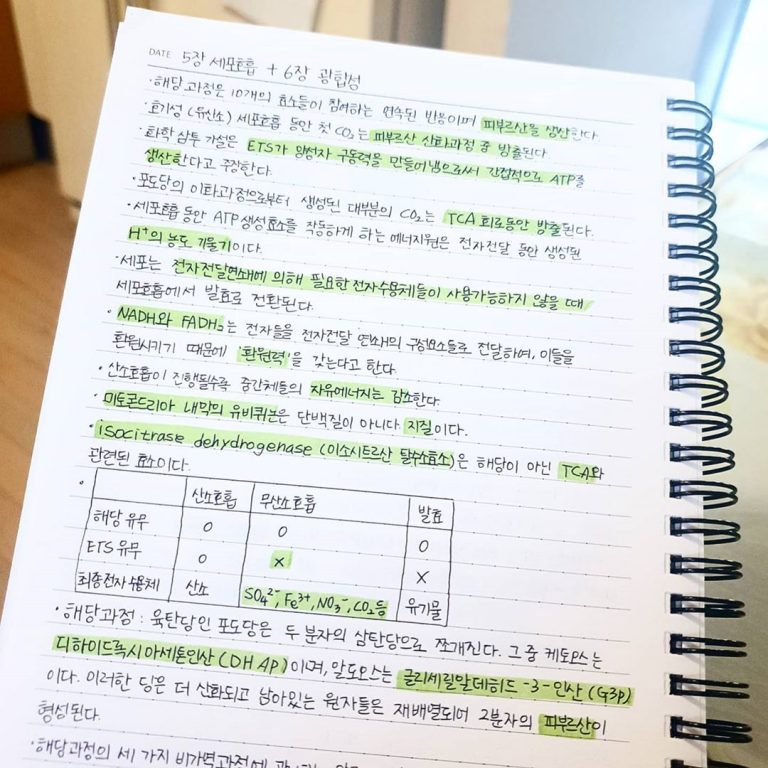 DATE 5장 세포호흡 + 6장 광합성
·해당과정은 10개의 효소들이 참여하는 연속된 반응이며 피부르산을 생산한다.
·호기성 (유산소) 세포호흡 동안 첫 CO₂는 피부르산 산화과정 중 방출된다
·화학 삼투 가설은 ETS가 양성자 구동력을 만들어냄으로써 간접적으로 ATP를
생산한다고 주장한다.
·포도당의 이화과정으로부터 생성된 대부분의 CO₂는 TCA 회로동안 방출된다.
·세포호흡 동안 ATP 생성효소를 작동하게 하는 에너지원은 전자전달 동안 생성된
H⁺의 농도 기울기이다.
·세포는 전자전달연쇄에 의해 필요한 전자수용체들이 사용가능하지 않을 때
세포호흡에서 발효로 전환된다.
·NADH와 FADH₂는 전자들을 전자전달 연쇄의 구성요소들로 전달하여, 이들을
환원시키기 때문에 '환원력'을 갖는다고 한다.
·산소호흡이 진행될수록 중간체들의 자유에너지는 감소한다.
·미토콘드리아 내막의 유비퀴논은 단백질이 아니다 지질이다.
·isocitrase dehydrogenase (이소시트르산 탈수소효소)은 해당이 아닌 TCA와
관련된 효소이다.
· 산소호흡 무산소호흡 발효
해당 유무 O O O
ETS 유무 O X X
최종전자 수용체 산소 SO₄²⁻, Fe³⁺, NO₃⁻, CO₂ 등 유기물
·해당과정 : 육탄당인 포도당은 두 분자의 삼탄당으로 쪼개진다. 그 중 케토오스는
디하이드록시아세톤인산 (DHAP)이며, 알도오스는 글리세릴알데히드-3-인산 (G3P)
이다. 이러한 당은 더 산화되고 남아있는 원자들은 재배열되어 2분자의 피부르산이
형성된다.
·해당과정의 세 가지 비가역과정에